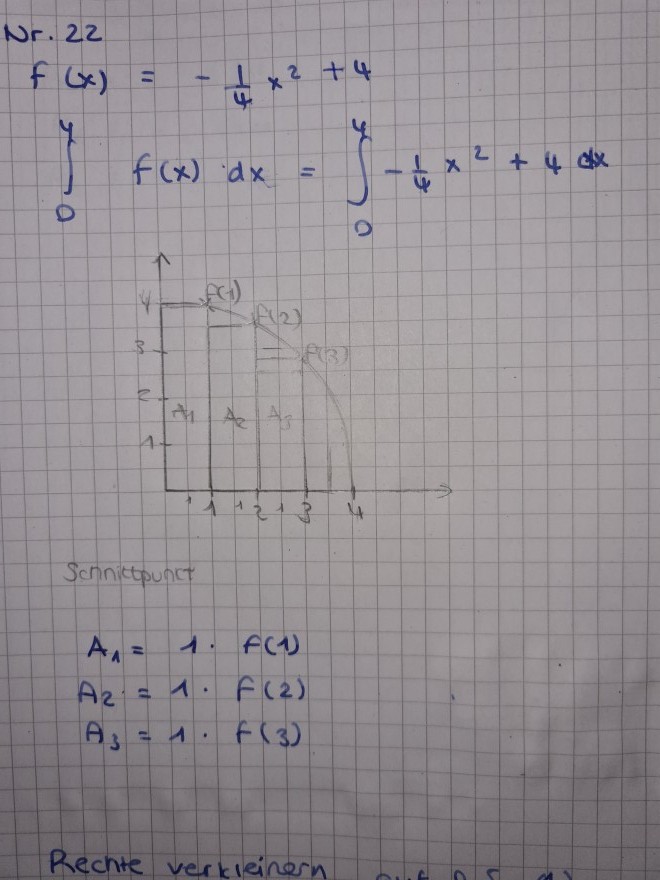 Nr. 22
f(x) = - 1/4 x² + 4
∫₀⁴ f(x) dx = ∫₀⁴ - 1/4 x² + 4 dx
f(1)
4
f(2)
3
f(3)
2
A1 A2 A3
1
1 1 1
1 2 3 4
Schnittpunct
A1 = 1 · f(1)
A2 = 1 · f(2)
A3 = 1 · f(3)
Rechte verkleinern auf 0,5